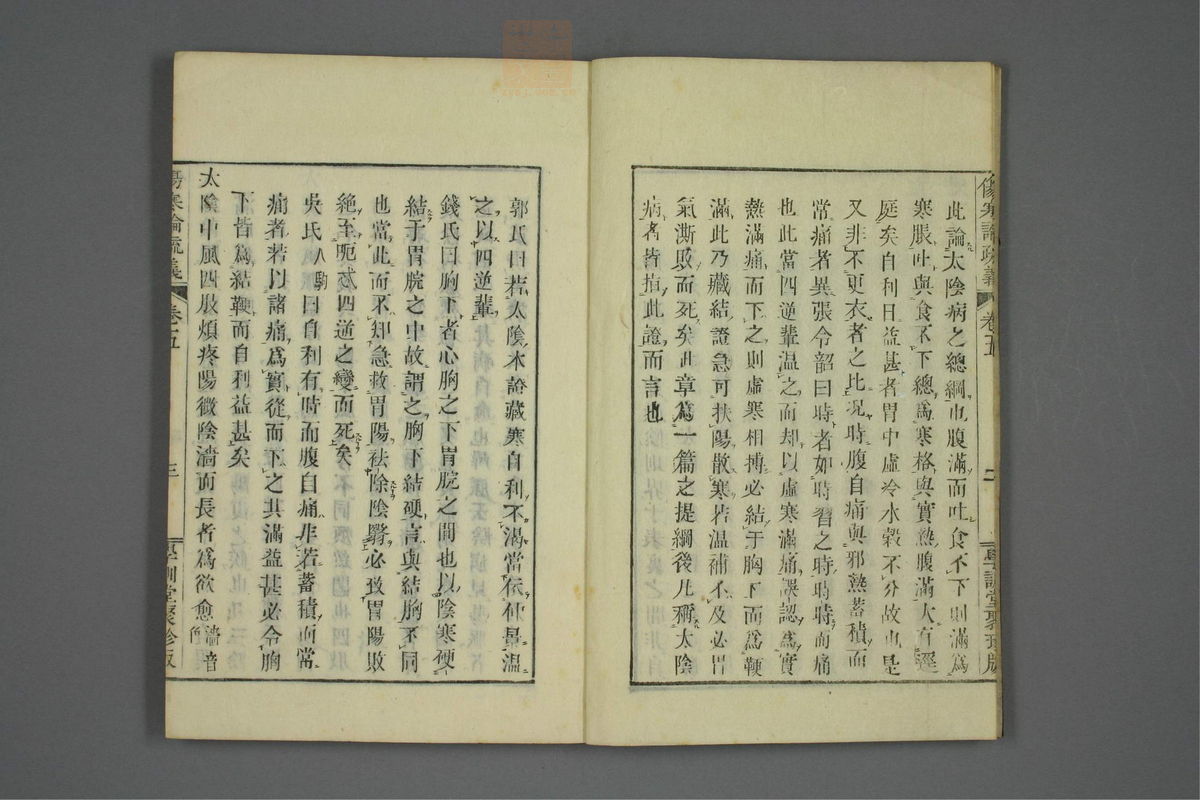 傷寒論疏義 卷五 二 學訓堂聚珍版
此論太陰病之總綱也腹滿而吐食不下則滿爲
寒脹吐與食不下總爲寒格與實熱腹滿大有逕
庭矣自利日益甚者胃中虛冷水穀不分故也是
又非不更衣者之比況時腹自痛與邪熱蓄積而
常痛者異張令韶曰時者如時習之時時時而痛
也此當四逆輩温之而却以虛寒滿痛誤認爲實
熱滿痛而下之則虛寒相搏必結于胸下而爲鞕
滿此乃藏結證急可扶陽散寒若温補不及必胃
氣澌敗而死矣此章爲一篇之提綱後凡稱太陰
病者皆指此證而言也
郭氏曰若太陰本證藏寒自利不渴當依仲景温
之以四逆輩
錢氏曰胸下者心胸之下胃脘之間也以陰寒硬
結于胃脘之中故謂之胸下結硬言與結胸不同
也當此而不知急救胃陽袪除陰翳必致胃陽敗
絶至呃忒四逆之變而死矣
吳氏人駒曰自利有時而腹自痛非若蓄積而常
痛者若以諸痛爲實從而下之其滿益甚必令胸
下皆爲結鞕而自利益甚矣
太陰中風四肢煩疼陽微陰濇而長者爲欲愈濇音
傷寒論疏義 卷五 三 學訓堂聚珍版